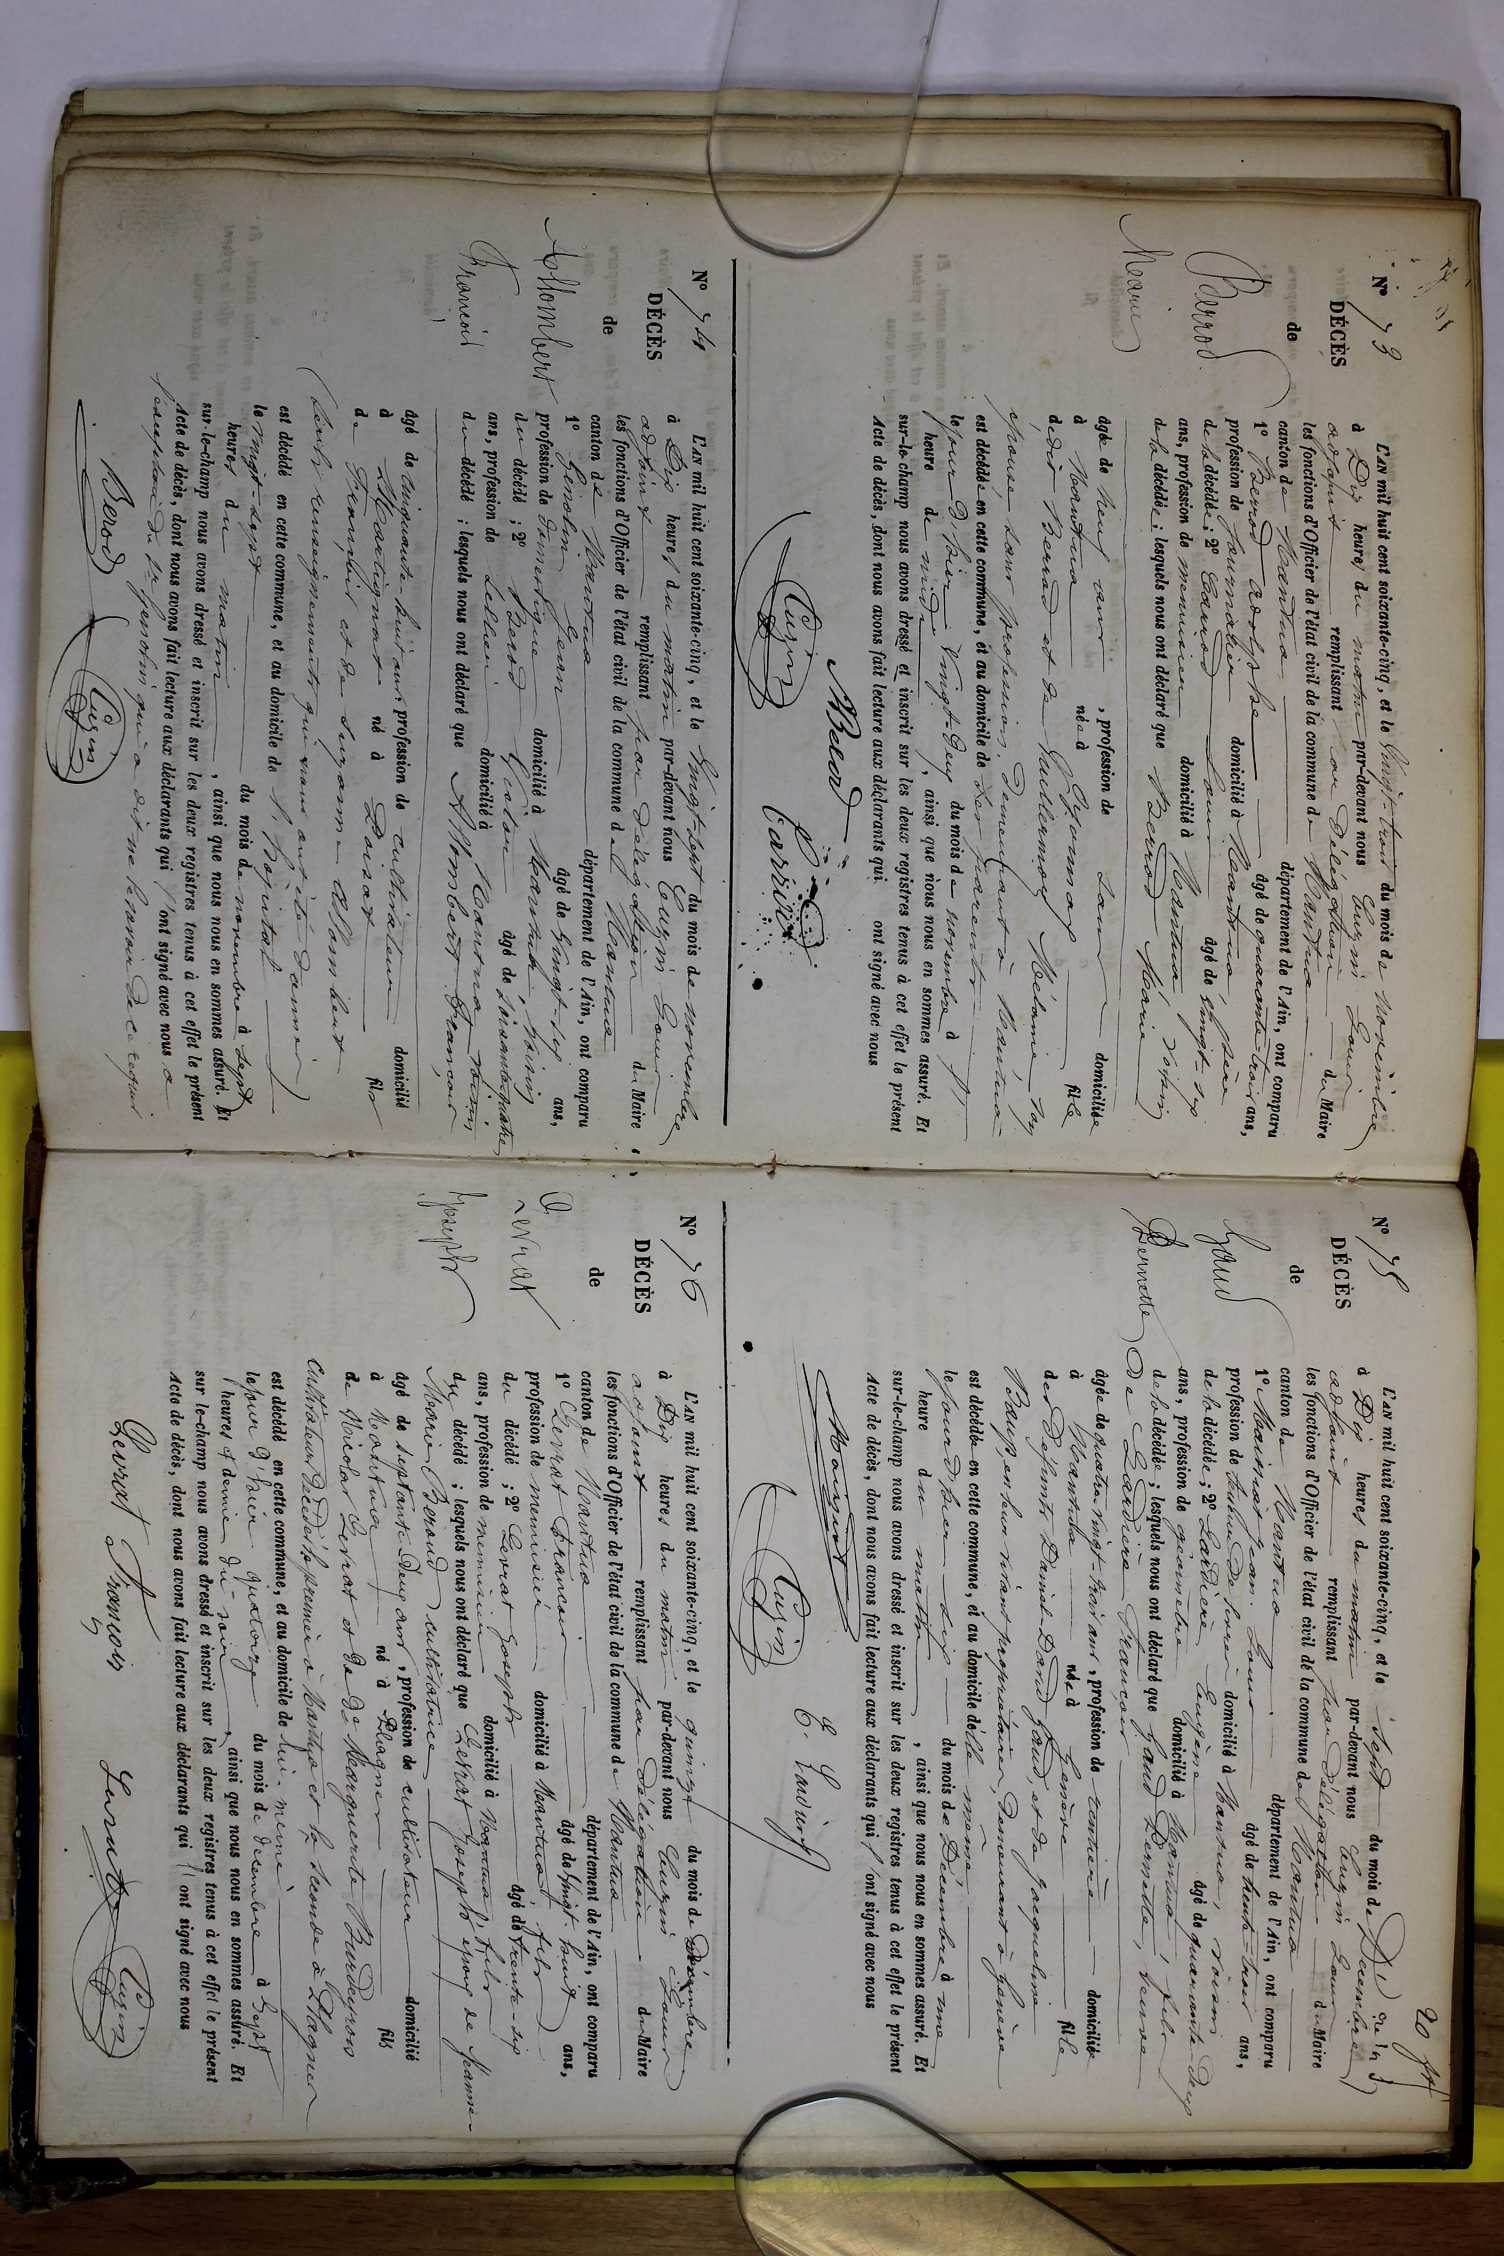 N° 73
DÉCÈS
de
Berrod
Marie
L'AN mil huit cent soixante-cinq, et le vingt-trois du mois de novembre
à Dix heures du matin par-devant nous Cuzin Louis
adjoint remplissant par délégation du Maire
les fonctions d'Officier de l'état civil de la commune de Nantua
canton de Nantua département de l'Ain, ont comparu
1° Berrod adolphe âgé de quarante-trois ans,
profession de journalier domicilié à Nantua, père
de la décédée; 2° Carriod Louis âgé de vingt-six
ans, profession de menuisier domicilié à Nantua, voisin
de la décédée; lesquels nous ont déclaré que Berrod Marie
âgée de neuf ans, profession de sans domiciliée
à Nantua née à Oyonnax fille
dedit Berrod et de Guillermoz Mélanie, son
épouse sans profession, demeurant à Nantua
est décédée en cette commune, et au domicile de ses parents
le jour d'hier vingt-deux du mois de novembre à
heure de midi, ainsi que nous nous en sommes assuré. Et
sur-le-champ nous avons dressé et inscrit sur les deux registres tenus à cet effet le présent
Acte de décès, dont nous avons fait lecture aux déclarants qui ont signé avec nous
Berod
Carriod
Cuzin
N° 74
DÉCÈS
de
Allombert
François
L'AN mil huit cent soixante-cinq, et le vingt-sept du mois de novembre
à Dix heures du matin par-devant nous Cuzin Louis
adjoint remplissant par délégation du Maire
les fonctions d'Officier de l'état civil de la commune de Nantua
canton de Nantua département de l'Ain, ont comparu
1° Genolin Jean âgé de vingt-six ans,
profession de domestique domicilié à Nantua, voisin
du décédé; 2° Berod âgé de soixante quatre
ans, profession de sellier domicilié à Nantua, voisin
du décédé; lesquels nous ont déclaré que Allombert François
âgé de cinquante-huit ans, profession de cultivateur domicilié
à Martignat né à fils
de François et de Suzanne Allombert
(seuls renseignements qui nous ont été donnés)
est décédé en cette commune, et au domicile de l'hôpital
le vingt-sept du mois de novembre à sept
heures du matin, ainsi que nous nous en sommes assuré. Et
sur-le-champ nous avons dressé et inscrit sur les deux registres tenus à cet effet le présent
Acte de décès, dont nous avons fait lecture aux déclarants qui l'ont signé avec nous à
l'exception du Sr Genolin qui a dit ne le savoir de ce requis
Berod
Cuzin
20
N° 75
DÉCÈS
de
Gaud
Pernette
L'AN mil huit cent soixante-cinq, et le sept du mois de Décembre
à Dix heures du matin par-devant nous Cuzin Louis
adjoint remplissant par délégation du Maire
les fonctions d'Officier de l'état civil de la commune de Nantua
canton de Nantua département de l'Ain, ont comparu
1° Moinat Jean Louis âgé de trente-huit ans,
profession de domicilié à Nantua, voisin
de la décédée; 2° Lardière Eugène âgé de quarante-deux
ans, profession de géomètre domicilié à Nantua, fils
de la décédée; lesquels nous ont déclaré que Gaud Pernette, veuve
de Lardière François
âgée de quatre-vingt-trois ans, profession de rentière domiciliée
à Nantua née à Genève fille
des défunts Daniel David Gaud, et de Jaqueline
de leur vivant propriétaires, demeurant à Genève
est décédée en cette commune, et au domicile d'elle même
le jour d'hier six du mois de Décembre à une
heure du matin, ainsi que nous nous en sommes assuré. Et
sur-le-champ nous avons dressé et inscrit sur les deux registres tenus à cet effet le présent
Acte de décès, dont nous avons fait lecture aux déclarants qui l'ont signé avec nous
Moinat
Cuzin
N° 76
DÉCÈS
de
Levrat
Joseph
L'AN mil huit cent soixante-cinq, et le quinze du mois de Décembre
à Dix heures du matin par-devant nous Cuzin Louis
adjoint remplissant par délégation du Maire
les fonctions d'Officier de l'état civil de la commune de Nantua
canton de Nantua département de l'Ain, ont comparu
1° Levrat François âgé de vingt-huit ans,
profession de menuisier domicilié à Nantua, fils
du décédé; 2° Levrat Joseph âgé de trente-six
ans, profession de menuisier domicilié à Nantua, fils
du décédé; lesquels nous ont déclaré que Levrat Joseph époux de Jeanne-
Marie Beroud cultivatrice
âgé de septante deux ans, profession de cultivateur domicilié
à Nantua né à Plagnes fils
de Nicolas Levrat et de de Marguerite Burdeyron
cultivateurs décédés le premier à Nantua et la seconde à Plagnes
est décédé en cette commune, et au domicile de lui-même
le jour d'hier quatorze du mois de décembre à sept
heures et demie du soir, ainsi que nous nous en sommes assuré. Et
sur-le-champ nous avons dressé et inscrit sur les deux registres tenus à cet effet le présent
Acte de décès, dont nous avons fait lecture aux déclarants qui l'ont signé avec nous
Levrat François
Levrat
Cuzin